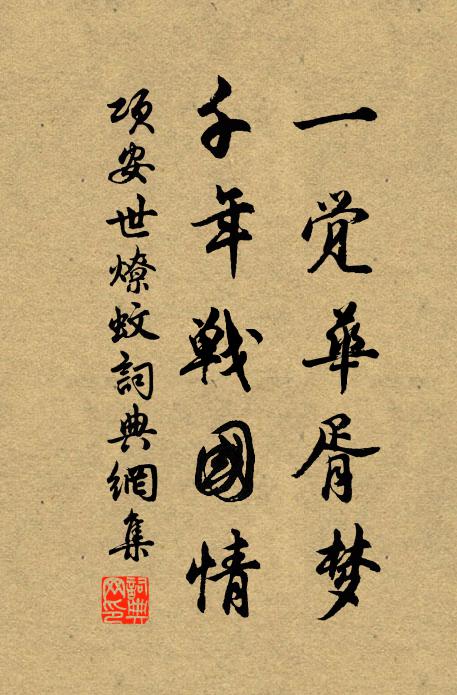 一觉華胥梦
千年戰國情
项安世燎蚊詞典網集
詞典网印